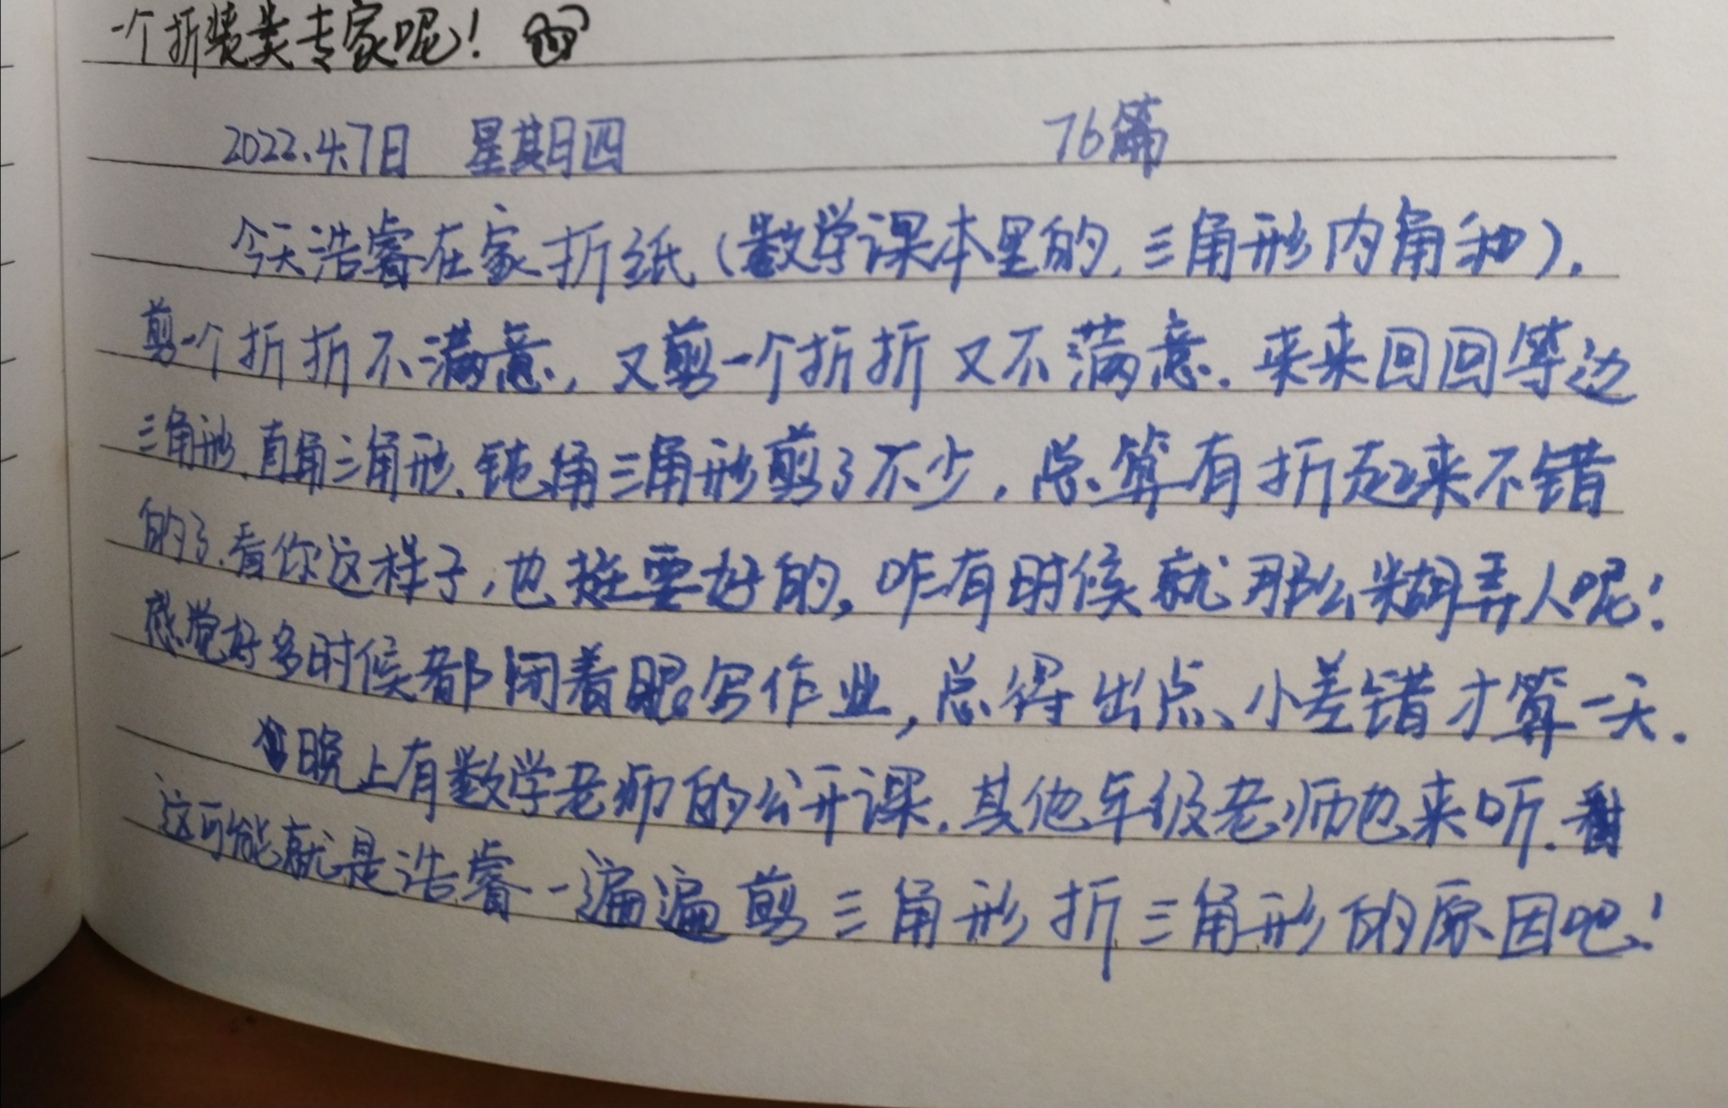 一个拆装类专家呢！
2022.4.7日 星期四 76篇
今天浩睿在家折纸（数学课本里的,三角形内角和）.
剪一个折折不满意，又剪一个折折又不满意.来来回回等边
三角形.直角三角形.钝角三角形剪了不少，总算有折起来不错
的了.看你这样子，也挺要好的，咋有时候就那么糊弄人呢！
感觉好多时候都闭着眼写作业，总得出点小差错才算一天.
晚上有数学老师的公开课.其他年级老师也来听.
这可能就是浩睿一遍遍剪三角形折三角形的原因吧！